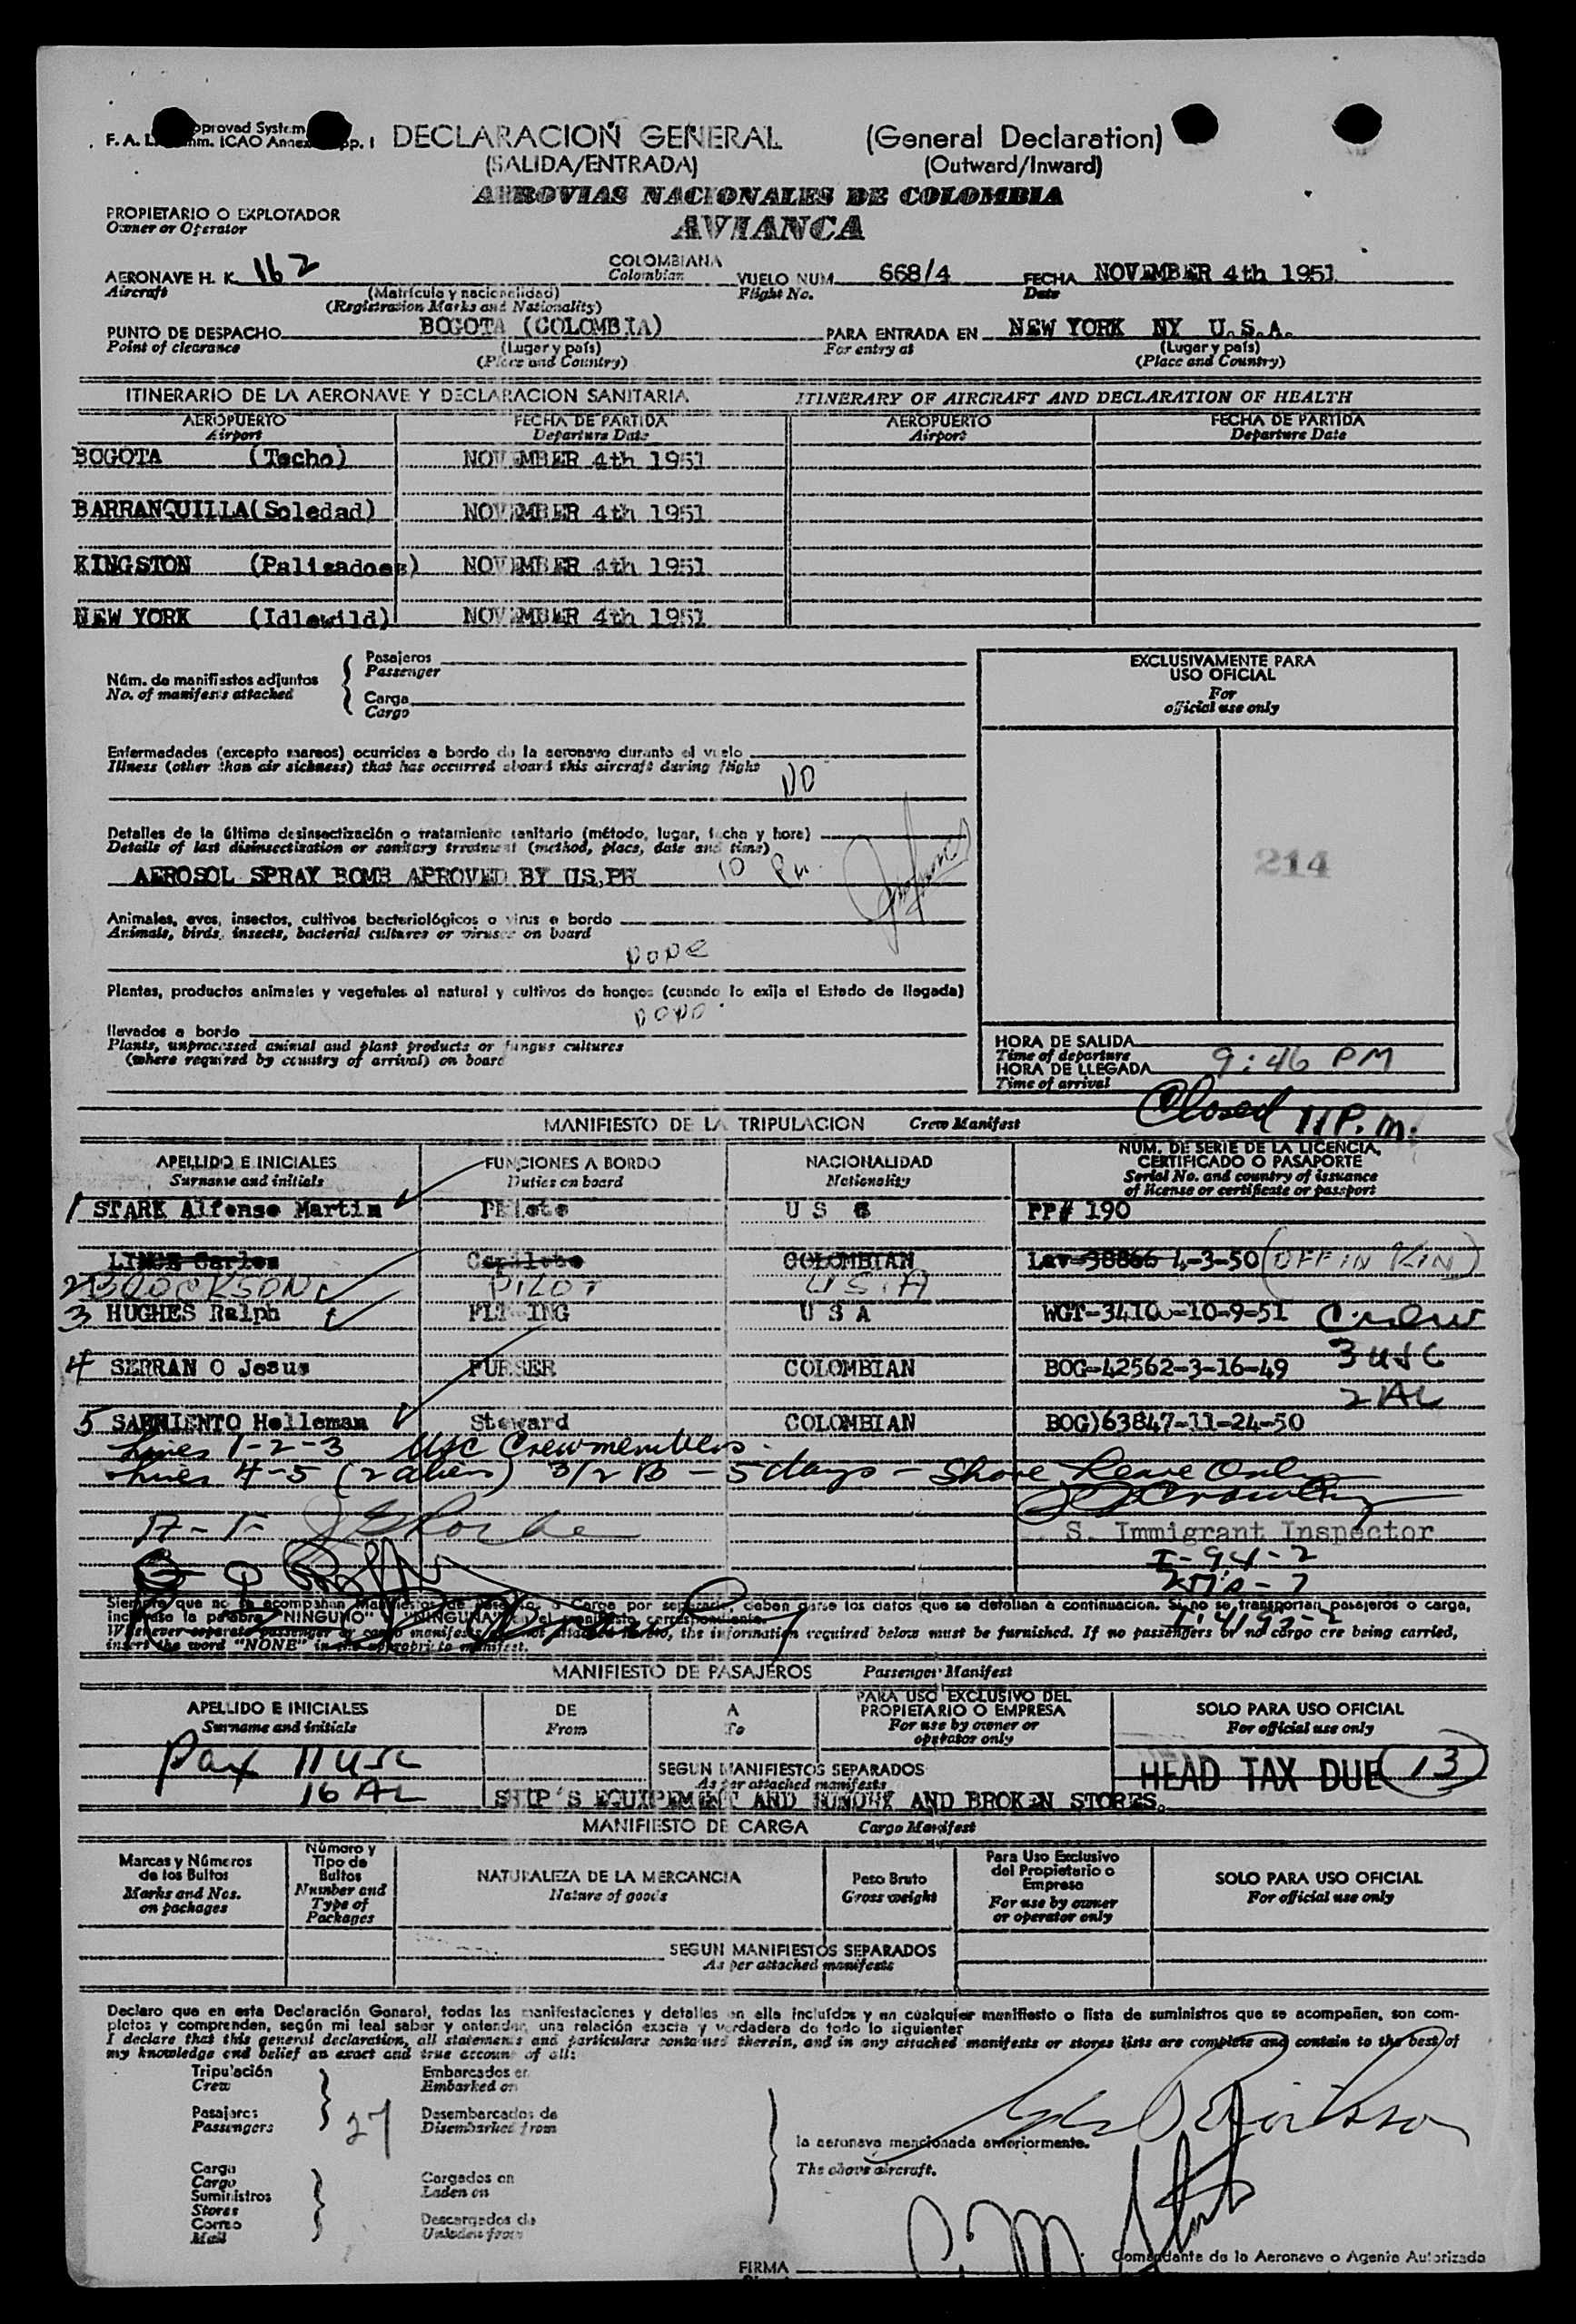 DECLARACION GENERAL (General Declaration)
F. A. L. ICAO
(SALIDA/ENTRADA) (Outward/Inward)
AEROVIAS NACIONALES DE COLOMBIA
AVIANCA
PROPIETARIO O EXPLOTADOR
Owner or Operator
AERONAVE H. K. 162 COLOMBIANA VUELO NUM. 668/4 FECHA NOVEMBER 4th 1951
Aircraft (Matrícula y nacionalidad) Colombian Flight No. Date
(Registration Marks and Nationality)
PUNTO DE DESPACHO BOGOTA (COLOMBIA) PARA ENTRADA EN NEW YORK NY U.S.A.
Point of clearance (Lugar y país) For entry at (Lugar y país)
(Place and Country) (Place and Country)
ITINERARIO DE LA AERONAVE Y DECLARACION SANITARIA ITINERARY OF AIRCRAFT AND DECLARATION OF HEALTH
AEROPUERTO FECHA DE PARTIDA AEROPUERTO FECHA DE PARTIDA
Airport Departure Date Airport Departure Date
BOGOTA (Techo) NOVEMBER 4th 1951
BARRANQUILLA(Soledad) NOVEMBER 4th 1951
KINGSTON (Palisadoes) NOVEMBER 4th 1951
NEW YORK (Idlewild) NOVEMBER 4th 1951
Núm. de manifiestos adjuntos
No. of manifests attached
Pasajeros
Passenger
Carga
Cargo
EXCLUSIVAMENTE PARA
USO OFICIAL
For
official use only
Enfermedades (excepto mareos) ocurridas a bordo de la aeronave durante el vuelo
Illness (other than air sickness) that has occurred aboard this aircraft during flight
NO
Detalles de la última desinsectización o tratamiento sanitario (método, lugar, fecha y hora)
Details of last disinsectization or sanitary treatment (method, place, date and time)
AEROSOL SPRAY BOMB APROVED BY US.PH 10 Pm.
214
Animales, aves, insectos, cultivos bacteriológicos o virus a bordo
Animals, birds, insects, bacterial cultures or viruses on board
none
Plantas, productos animales y vegetales al natural y cultivos de hongos (cuando lo exija el Estado de llegada)
none
llevados a bordo
Plants, unprocessed animal and plant products or fungus cultures
(where required by country of arrival) on board
HORA DE SALIDA
Time of departure
HORA DE LLEGADA 9:46 PM
Time of arrival
Closed 11 P.m.
MANIFIESTO DE LA TRIPULACION Crew Manifest
APELLIDO E INICIALES FUNCIONES A BORDO NACIONALIDAD NUM. DE SERIE DE LA LICENCIA,
CERTIFICADO O PASAPORTE
Surname and initials Duties on board Nationality Serial No. and country of issuance
of license or certificate or passport
1 STARK Alfonso Martin US PP# 190
Carlos COLOMBIAN 4-3-50 (OFF IN KIN)
2 PILOT U.S.A
3 HUGHES Ralph USA 10-9-51 Crew
3 USC
4 SERRAN O Jesus PURSER COLOMBIAN BOG-42562-3-16-49
2 AL
5 SARMIENTO Helleman Steward COLOMBIAN BOG)63847-11-24-50
Lines 1-2-3 USC Crewmembers.
Lines 4-5 (2 aliens) 3/2 B - 5 days - Shore Leave Only
S. Immigrant Inspector
I-94-2
Siempre que no se acompañan Manifiestos de Pasajeros o Carga por separado, deben darse los datos que se detallan a continuación. Si no se transportan pasajeros o carga,
inclúyase la palabra "NINGUNO" y "NINGUNA" en el manifiesto correspondiente.
Whenever separate passenger or cargo manifests are not attached hereto, the information required below must be furnished. If no passengers or no cargo are being carried,
insert the word "NONE" in the appropriate manifest.
MANIFIESTO DE PASAJEROS Passenger Manifest
APELLIDO E INICIALES DE A PARA USO EXCLUSIVO DEL
PROPIETARIO O EMPRESA SOLO PARA USO OFICIAL
Surname and initials From To For use by owner or
operator only For official use only
Pax 11 USC
16 AL
SEGUN MANIFIESTOS SEPARADOS
As per attached manifests
HEAD TAX DUE (13)
SHIP'S EQUIPEMENT AND AND BROKEN STORES.
MANIFIESTO DE CARGA Cargo Manifest
Marcas y Números
de los Bultos
Marks and Nos.
on packages
Número y
Tipo de
Bultos
Number and
Type of
Packages
NATURALEZA DE LA MERCANCIA
Nature of goods
Peso Bruto
Gross weight
Para Uso Exclusivo
del Propietario o
Empresa
For use by owner
or operator only
SOLO PARA USO OFICIAL
For official use only
SEGUN MANIFIESTOS SEPARADOS
As per attached manifests
Declaro que en esta Declaración General, todas las manifestaciones y detalles en ella incluídos y en cualquier manifiesto o lista de suministros que se acompañen, son com-
pletos y comprenden, según mi leal saber y entender, una relación exacta y verdadera de todo lo siguiente
I declare that this general declaration, all statements and particulars contained therein, and in any attached manifests or stores lists are complete and contain to the best of
my knowledge and belief an exact and true account of all:
Tripulación Embarcados en
Crew Embarked on
Pasajeros 27 Desembarcados de
Passengers Disembarked from
la aeronave mencionada anteriormente.
The above aircraft.
Carga Cargados en
Cargo Laden on
Suministros
Stores
Correo Descargados de
Mail Unladen from
FIRMA
Comandante de la Aeronave o Agente Autorizado